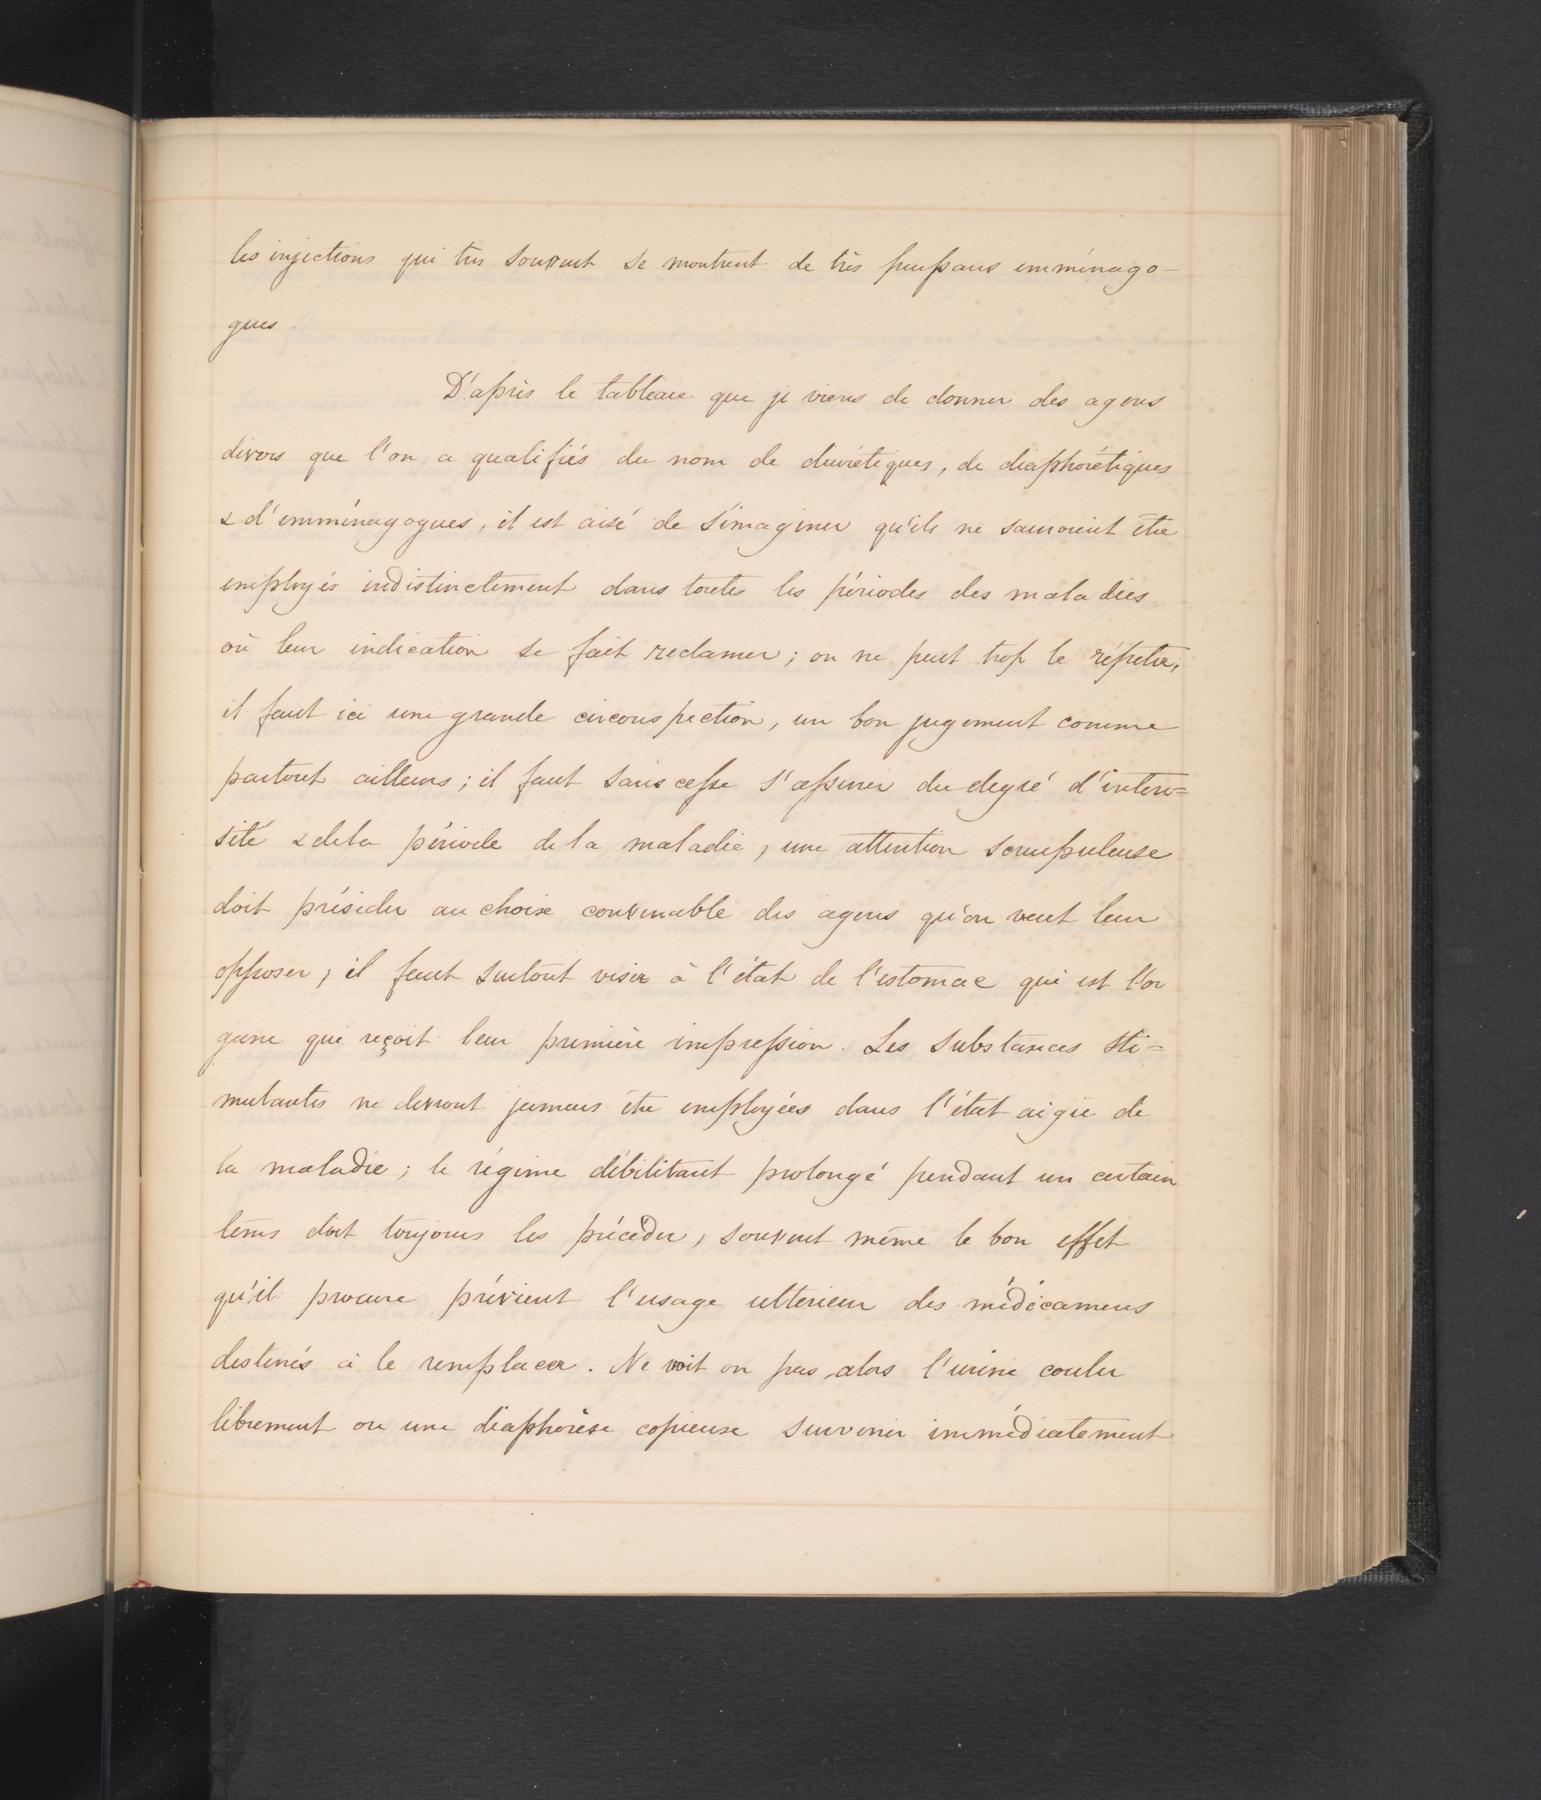 les injections qui très souvent se montrent de très puissans emménago-
gues.
D'après le tableau que je viens de donner des agens
divers que l'on a qualifiés du nom de diurétiques, de diaphorétiques
& d'emménagogues, il est aisé de s'imaginer qu'ils ne sauroient être
employés indistinctement dans toutes les périodes des maladies
où leur indication se fait reclamer; on ne peut trop le répeter;
il faut ici une grande circonspection, un bon jugement comme
partout ailleurs; il faut sans cesse s'assurer du degré d'inten=
sité & dela période de la maladie, une attention scrupuleuse
doit présider au choix convenable des agens qu'on veut leur
opposer; il faut surtout viser à l'état de l'estomac qui est l'or
gane qui reçoit leur première impression. Les substances sti=
mulantes ne devront jamais être employées dans l'état aigüe de
la maladie; le régime débilitant prolongé pendant un certain
tems doit toujours les précéder, souvent même le bon effet
qu'il procure prévient l'usage ulterieur des médicamens
destinés à le remplacer. Ne voit on pas alors l'urine couler
librement ou une diaphorèse copieuse survenir immédiatement